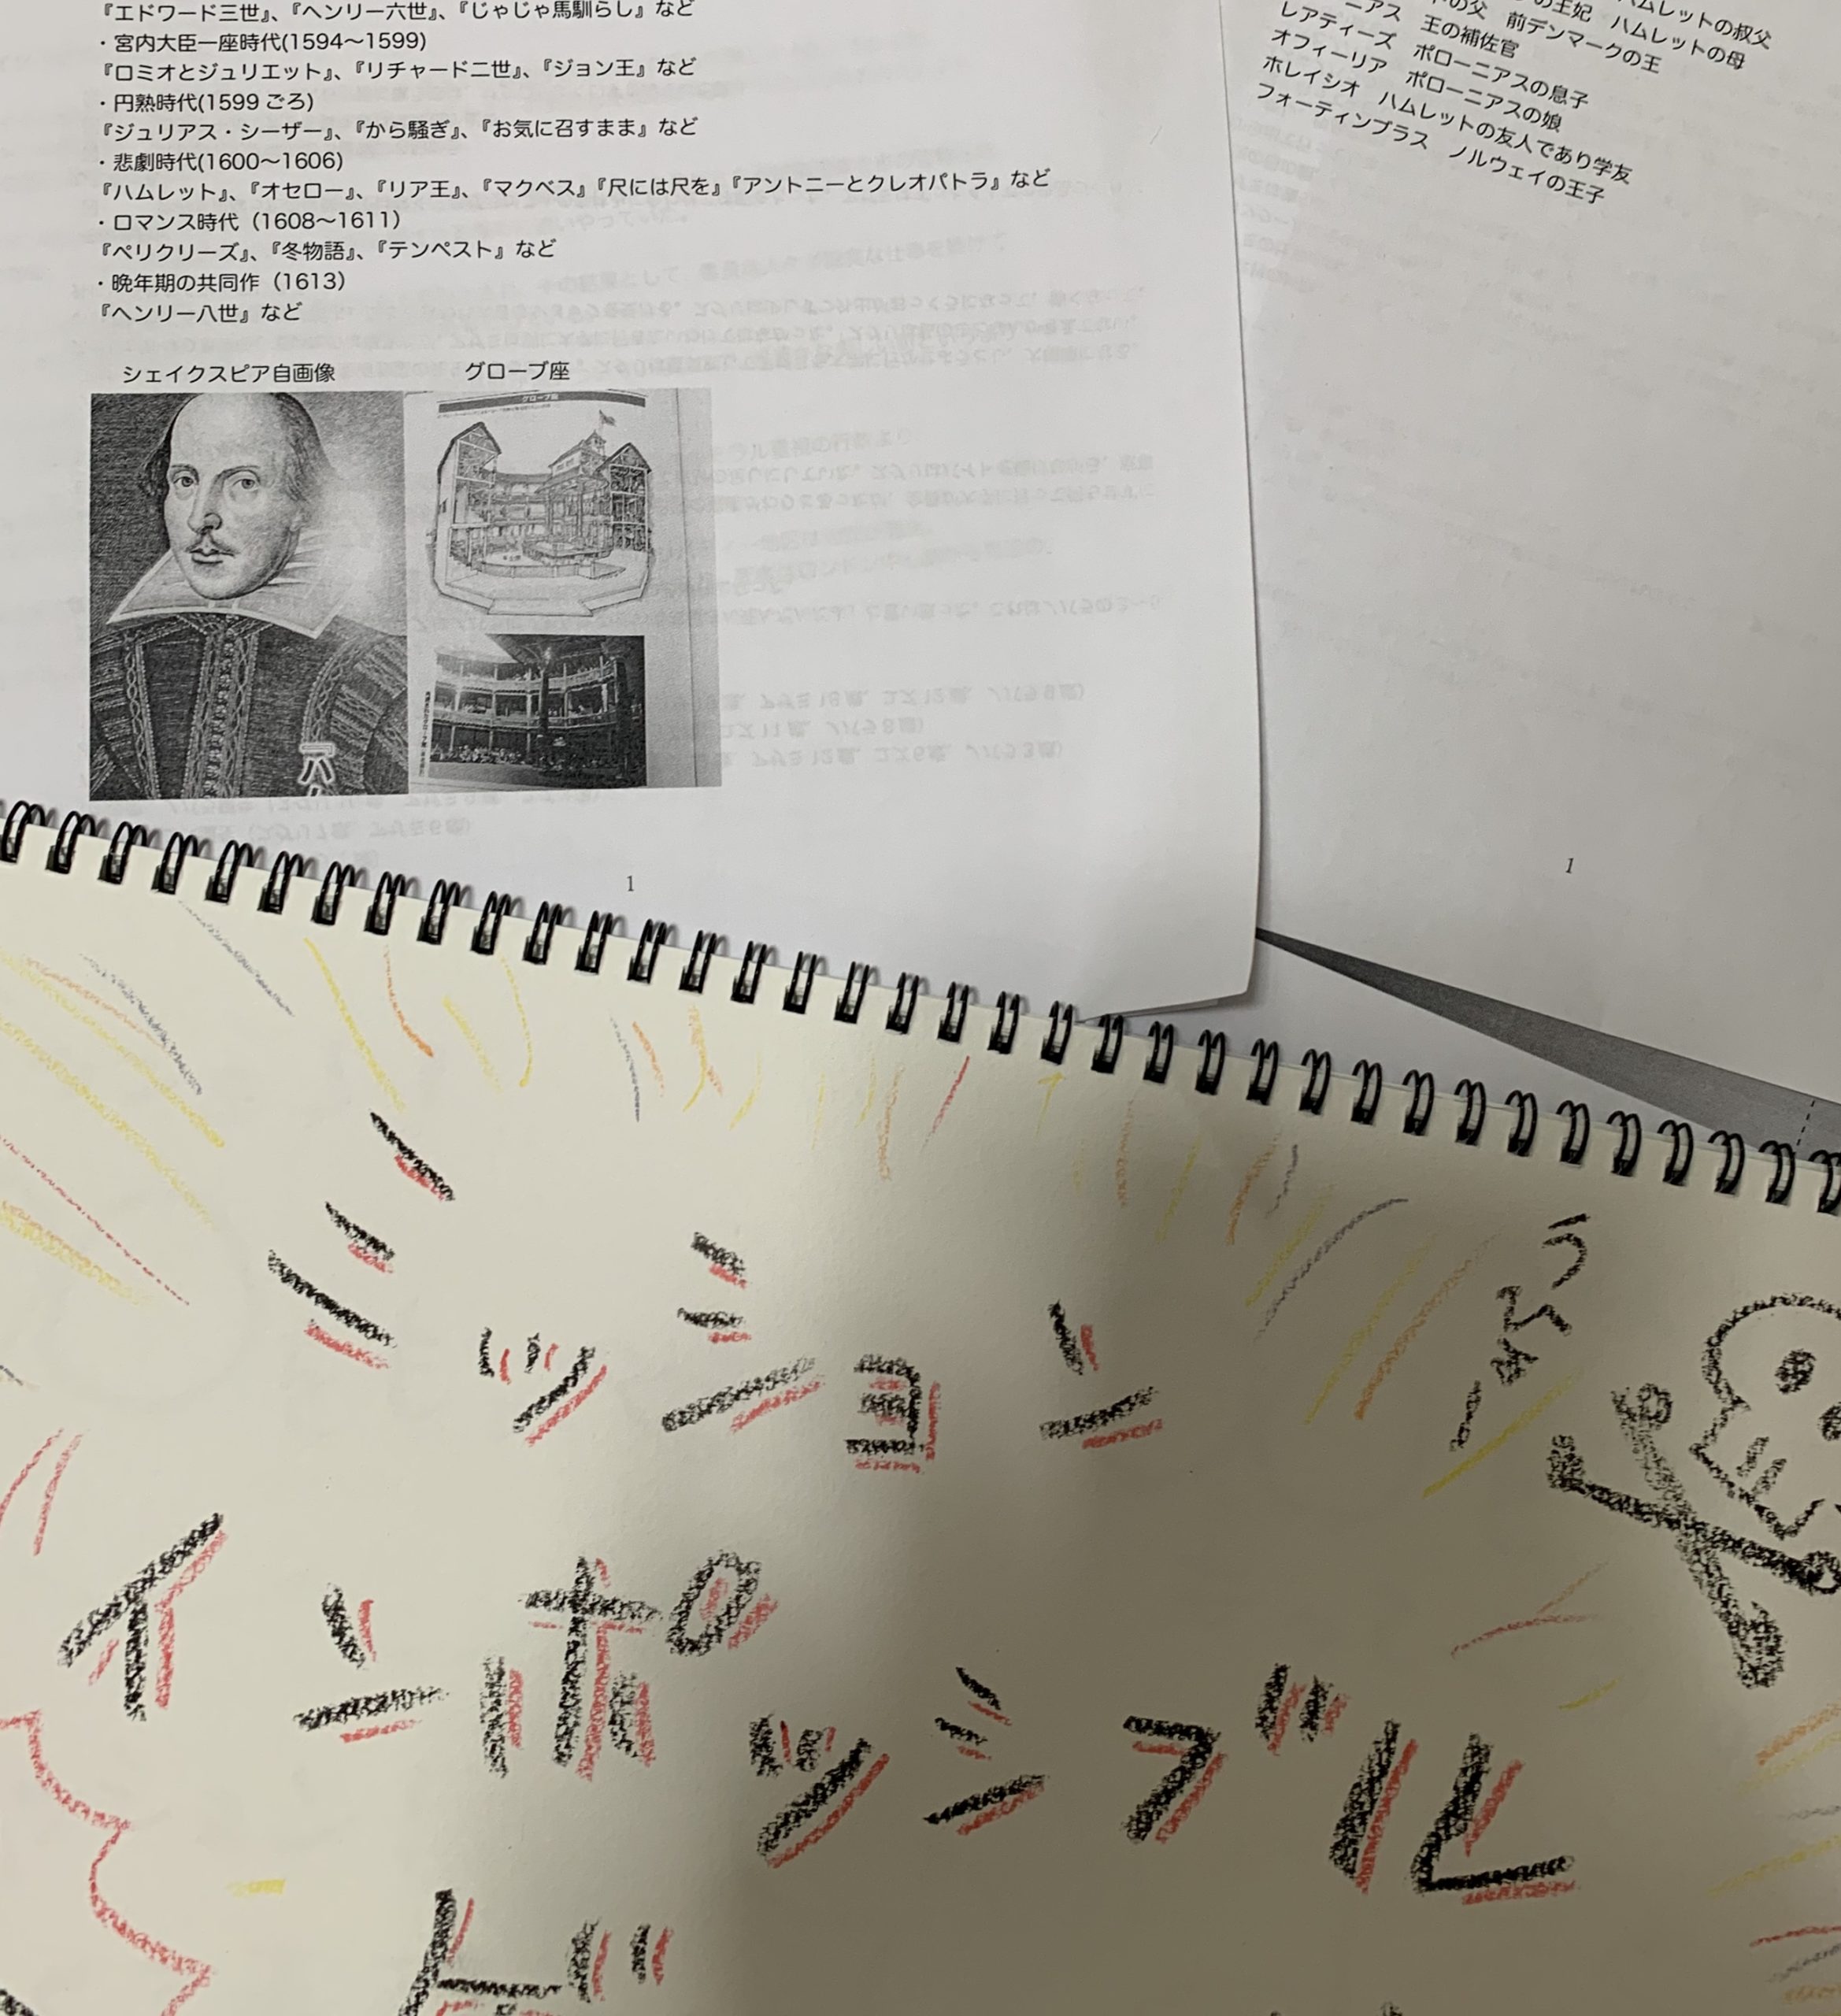 『エドワード三世』、『ヘンリー六世』、『じゃじゃ馬馴らし』など
・宮内大臣一座時代(1594～1599)
『ロミオとジュリエット』、『リチャード二世』、『ジョン王』など
・円熟時代(1599 ごろ)
『ジュリアス・シーザー』、『から騒ぎ』、『お気に召すまま』など
・悲劇時代(1600～1606)
『ハムレット』、『オセロー』、『リア王』、『マクベス』『尺には尺を』『アントニーとクレオパトラ』など
・ロマンス時代（1608～1611）
『ペリクリーズ』、『冬物語』、『テンペスト』など
・晩年期の共同作（1613）
『ヘンリー八世』など
シェイクスピア自画像
グローブ座
グローブ座
1
ハムレットの叔父
の王妃 ハムレットの母
の父 前デンマークの王
ニアス 王の補佐官
レアティーズ ポローニアスの息子
オフィーリア ポローニアスの娘
ホレイシオ ハムレットの友人であり学友
フォーティンブラス ノルウェイの王子
1
ミッション
インポッシブル